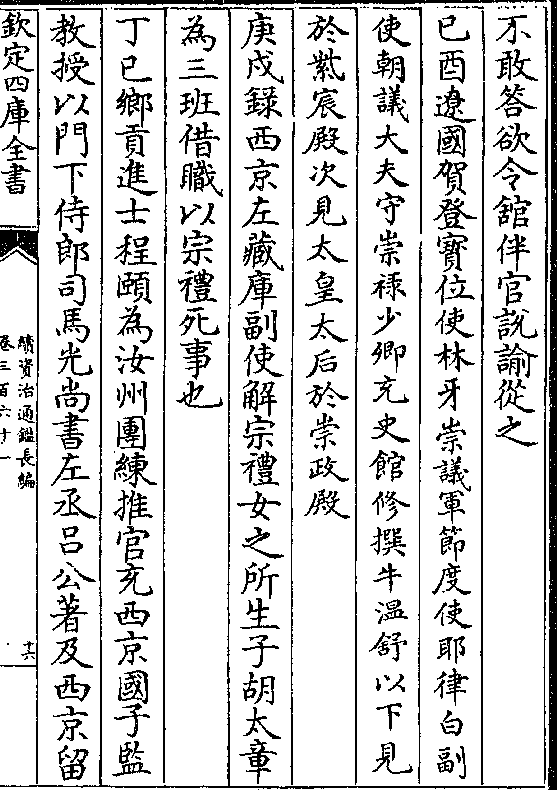 不敢答欲令舘伴官說諭從之
己酉遼國賀登寳位使林牙崇議軍節度使耶律白副
使朝議大夫守崇禄少卿充史館修撰牛温舒以下見
於紫宸殿次見太皇太后於崇政殿
庚戍錄西京左藏庫副使解宗禮女之所生子胡太章
為三班借職以宗禮死事也
丁巳鄉貢進士程頤為汝州團練推官充西京國子監
教授以門下侍郎司馬光尚書左丞吕公著及西京留
欽定四庫全書
續資治通鑑長編
卷三百六十一
十六